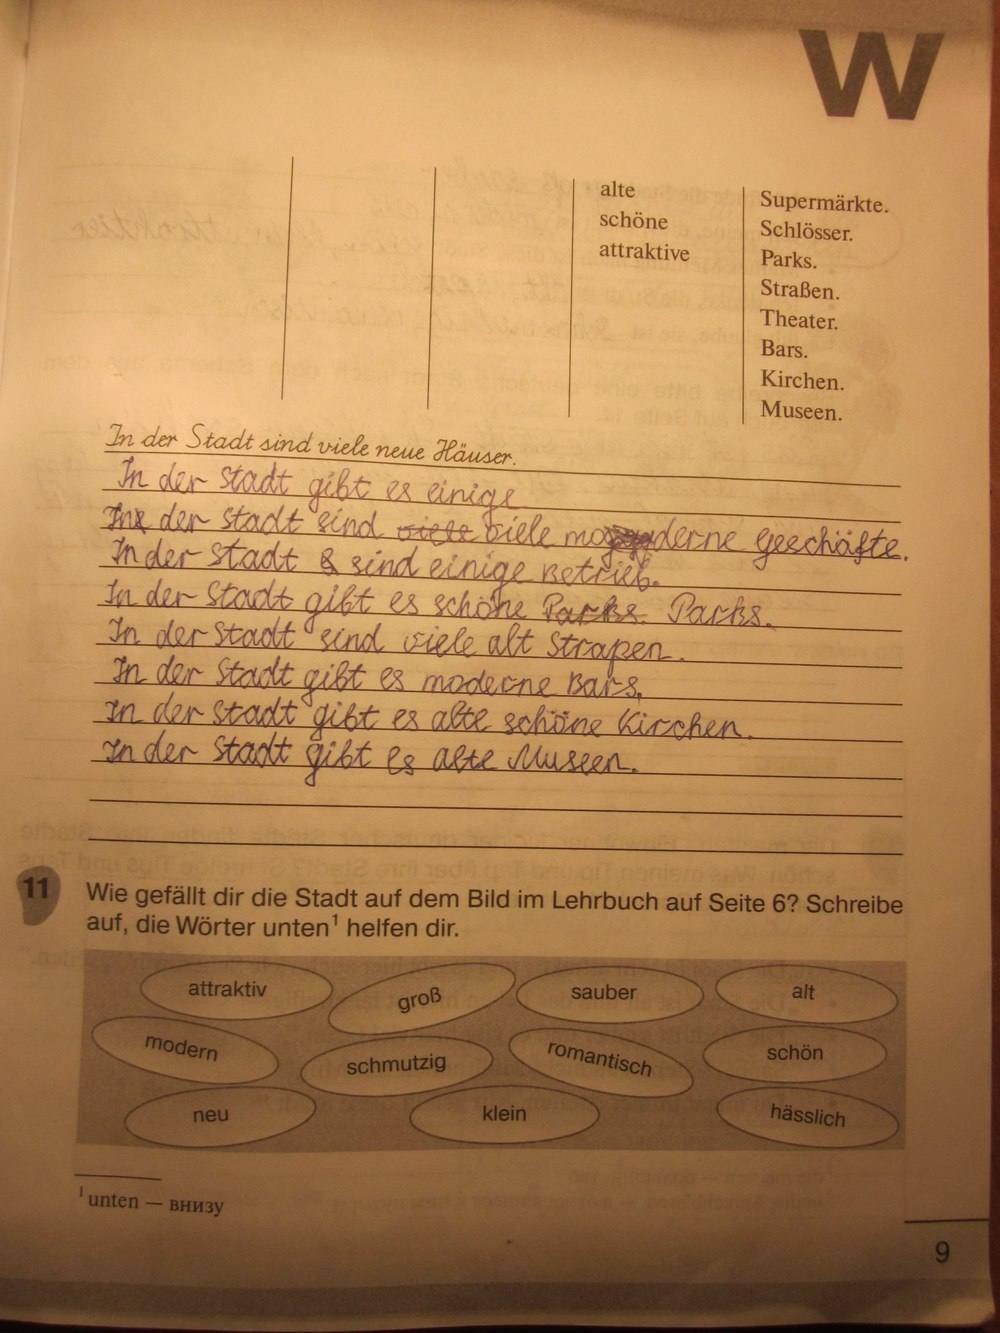 W
alte
schöne
attraktive
Supermärkte.
Schlösser.
Parks.
Straßen.
Theater.
Bars.
Kirchen.
Museen.
In der Stadt sind viele neue Häuser.
In der Stadt gibt es einige
In der Stadt sind viele viele moderne Geschäfte.
In der Stadt sind einige Betrieb.
In der Stadt gibt es schöne Parks. Parks.
In der Stadt sind viele alt Straßen.
In der Stadt gibt es moderne Bars.
In der Stadt gibt es alte schöne Kirchen.
In der Stadt gibt es alte Museen.
11 Wie gefällt dir die Stadt auf dem Bild im Lehrbuch auf Seite 6? Schreibe
auf, die Wörter unten¹ helfen dir.
attraktiv groß sauber alt
modern schmutzig romantisch schön
neu klein hässlich
¹ unten — внизу
9